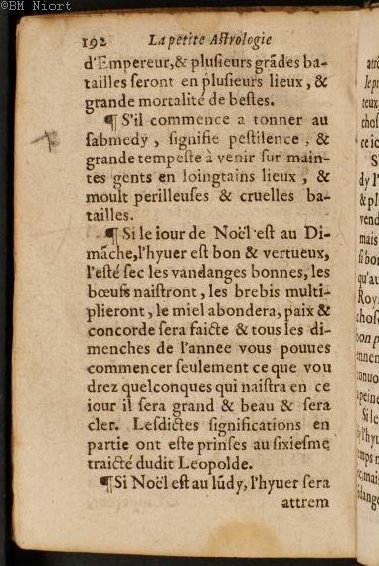 ©BM Niort
192 La petite Astrologie
d'Empereur,& plusieurs grãdes ba-
tailles seront en plusieurs lieux, &
grande mortalité de bestes.
¶ S'il commence a tonner au
sabmedy, signifie pestilence, &
grande tempeste à venir sur main-
tes gents en loingtains lieux, &
moult perilleuses & cruelles ba-
tailles.
¶ Si le iour de Noël est au Di-
mãche, l'hyuer est bon & vertueux,
l'esté sec les vandanges bonnes, les
bœufs naistront, les brebis multi-
plieront, le miel abondera, paix &
concorde sera faicte & tous les di-
menches de l'annee vous pouues
commencer seulement ce que vou
drez quelconques qui naistra en ce
iour il sera grand & beau & sera
cler. Lesdictes significations en
partie ont este prinses au sixiesme
traicté dudit Leopolde.
¶ Si Noël est au lũdy, l'hyuer sera
attrem